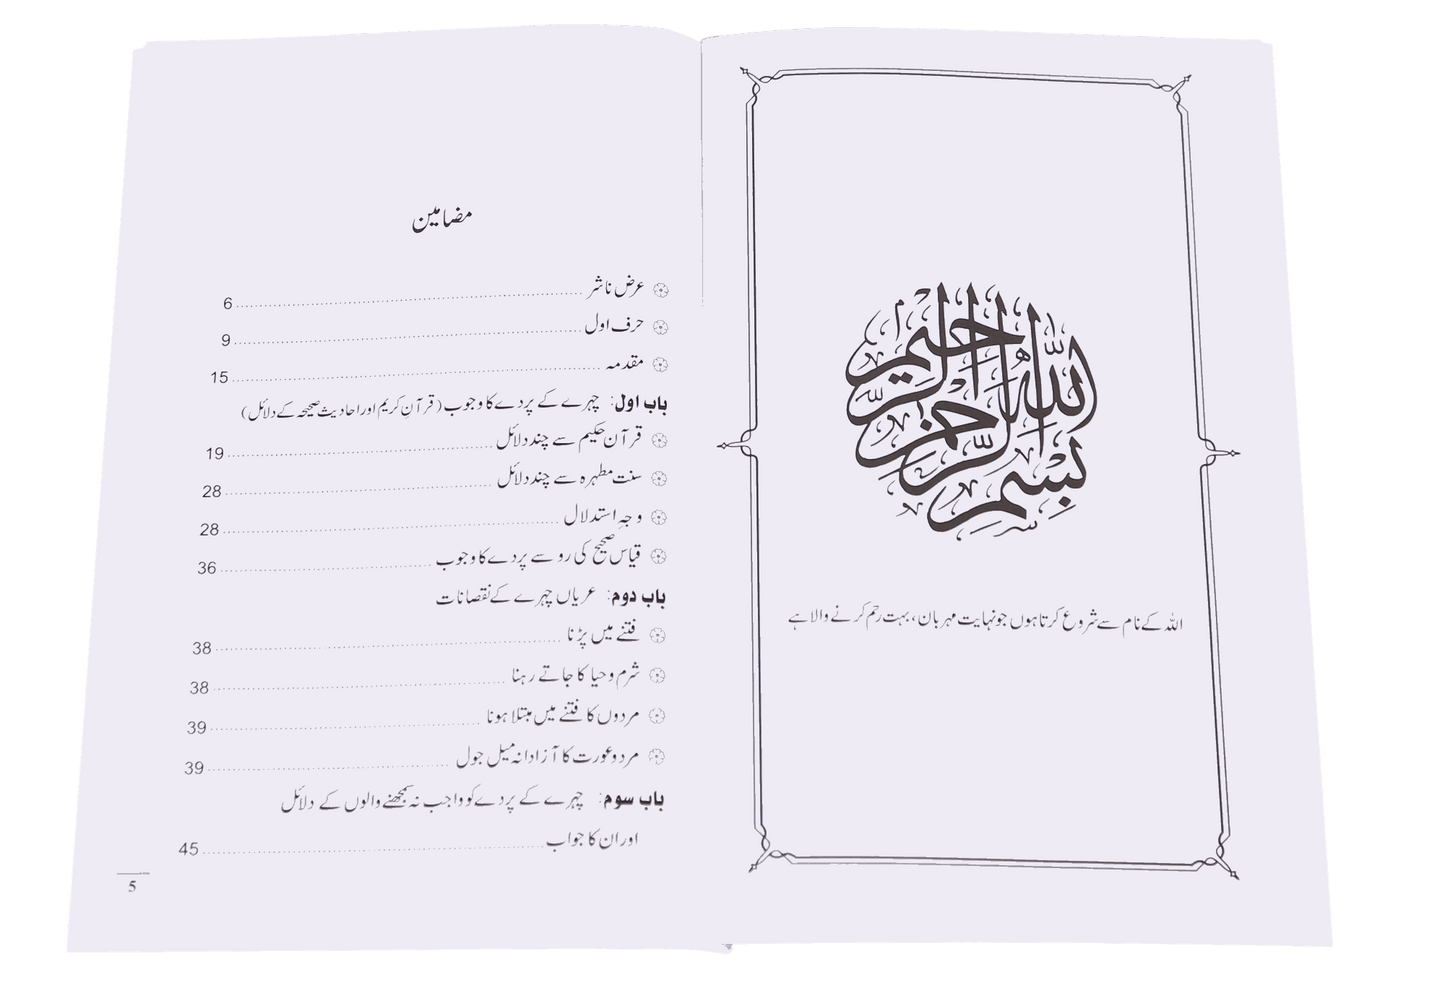 بسم الله الرحمن الرحيم
اللہ کے نام سے شروع کرتا ہوں جو نہایت مہربان، بہت رحم کرنے والا ہے
مضامین
عرض ناشر 6
حرف اول 9
مقدمہ 15
باب اول: چہرے کے پردے کا وجوب (قرآن کریم اور احادیث صحیحہ کے دلائل)
قرآن حکیم سے چند دلائل 19
سنت مطہرہ سے چند دلائل 28
وجہِ استدلال 28
قیاس صحیح کی رو سے پردے کا وجوب 36
باب دوم: عریاں چہرے کے نقصانات
فتنے میں پڑنا 38
شرم و حیا کا جاتے رہنا 38
مردوں کا فتنے میں مبتلا ہونا 39
مرد و عورت کا آزادانہ میل جول 39
باب سوم: چہرے کے پردے کو واجب نہ سمجھنے والوں کے دلائل
اور ان کا جواب 45
5